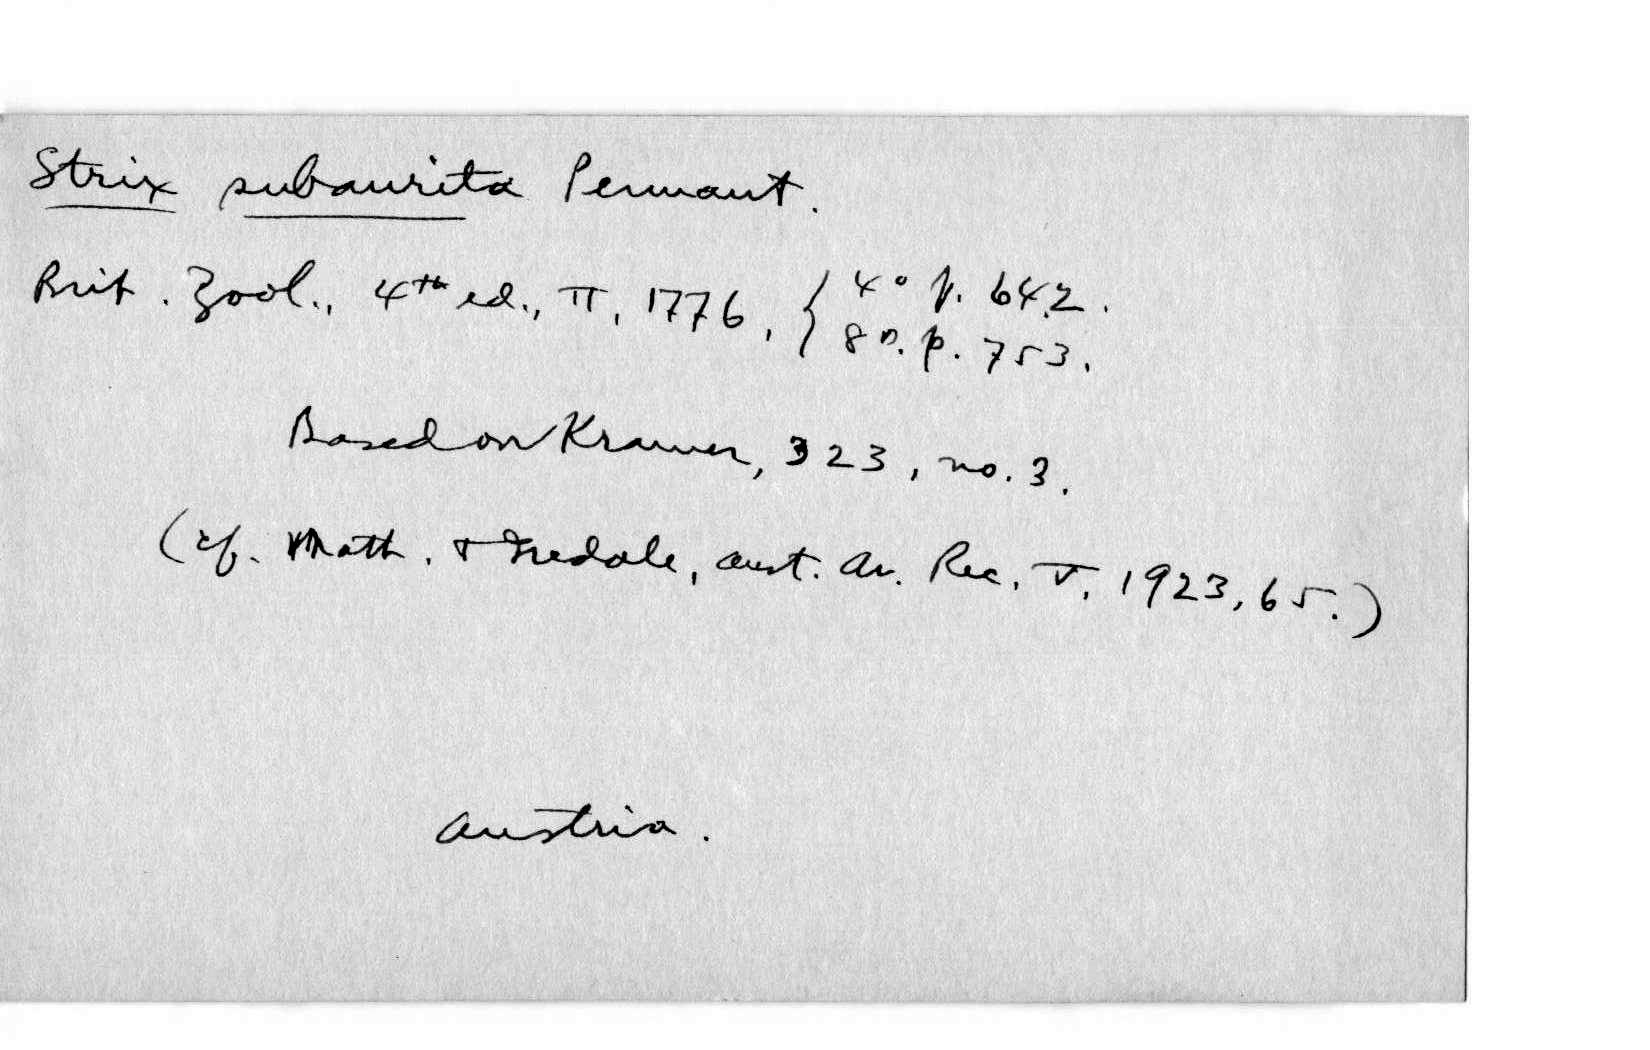 Strix subaurita Pennant.
Brit. Zool., 4th ed., II, 1776, { 4° p. 642.
8°. p. 753.
Based on Kramer, 323, no. 3.
(cf. Math. & Iredale, Aust. Av. Rec. V, 1923, 65.)
Austria.